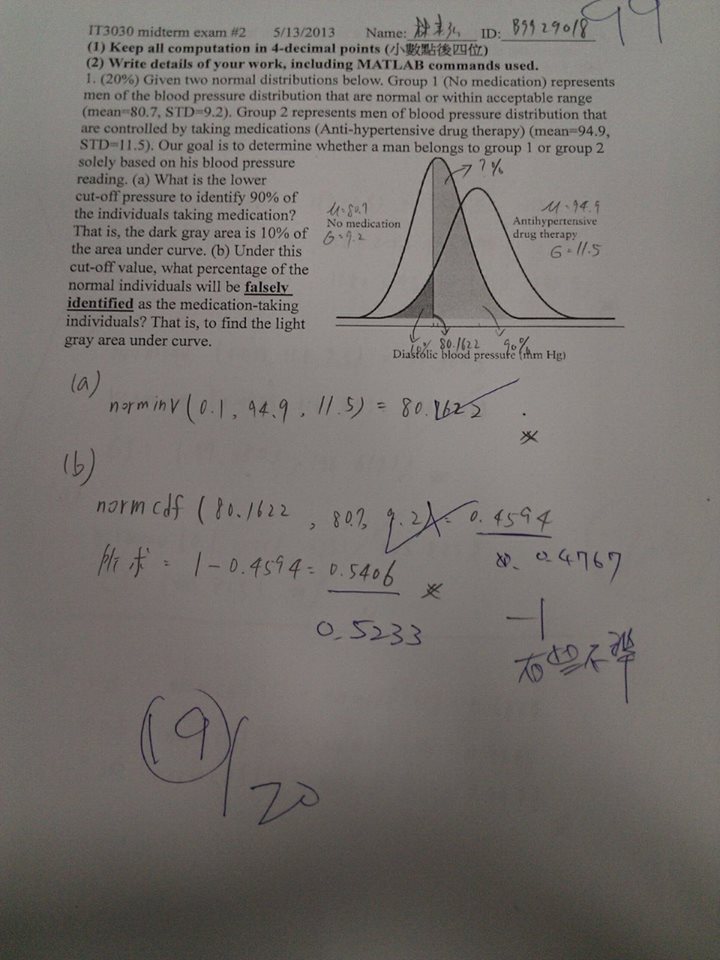 99
IT3030 midterm exam #2 5/13/2013 Name: ID: B9929018
(1) Keep all computation in 4-decimal points (小數點後四位)
(2) Write details of your work, including MATLAB commands used.
1. (20%) Given two normal distributions below. Group 1 (No medication) represents
men of the blood pressure distribution that are normal or within acceptable range
(mean=80.7, STD=9.2). Group 2 represents men of blood pressure distribution that
are controlled by taking medications (Anti-hypertensive drug therapy) (mean=94.9,
STD=11.5). Our goal is to determine whether a man belongs to group 1 or group 2
solely based on his blood pressure
reading. (a) What is the lower
cut-off pressure to identify 90% of
the individuals taking medication?
That is, the dark gray area is 10% of
the area under curve. (b) Under this
cut-off value, what percentage of the
normal individuals will be falsely
identified as the medication-taking
individuals? That is, to find the light
gray area under curve.
? %
μ=80.7
No medication
σ=9.2
μ=94.9
Antihypertensive
drug therapy
σ=11.5
10% 80.1622 90%
Diastolic blood pressure (mm Hg)
(a)
norminv (0.1, 94.9, 11.5) = 80.1622
(b)
normcdf (80.1622, 80.7, 9.2) = 0.4594
0.4767
所求 = 1-0.4594 = 0.5406
0.5233
-1
有些不準
19/20